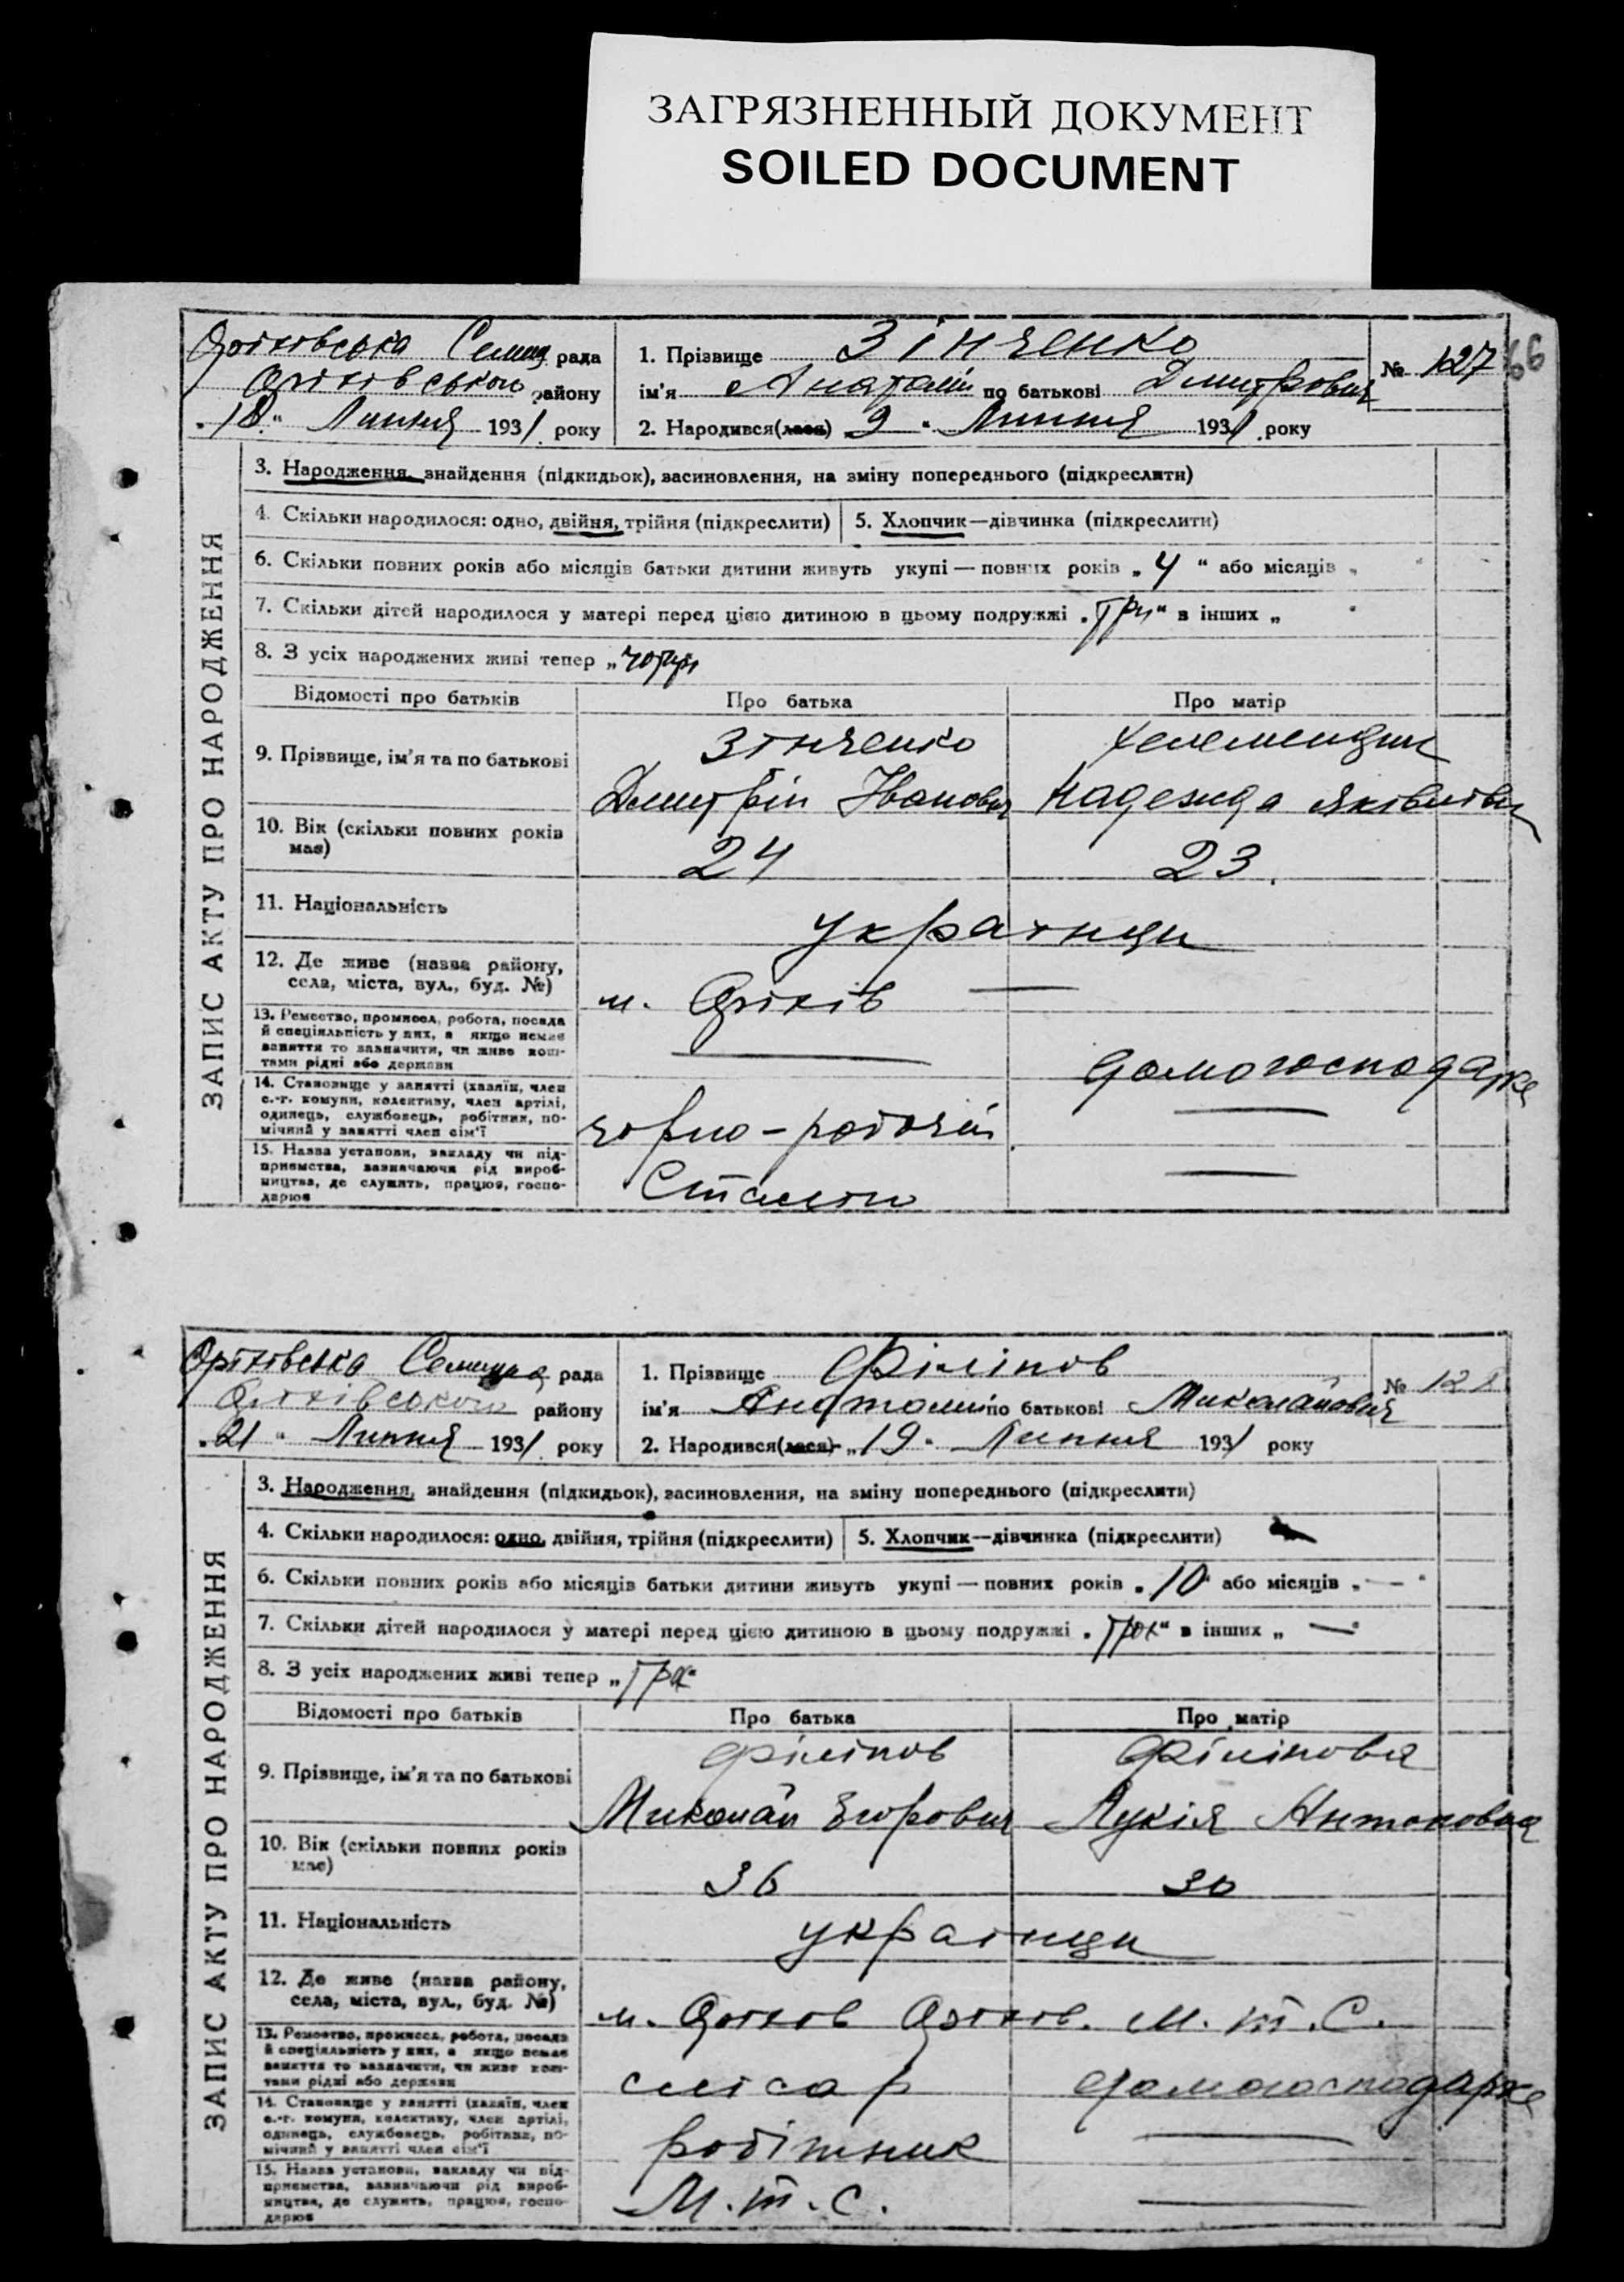 ЗАГРЯЗНЕННЫЙ ДОКУМЕНТ
SOILED DOCUMENT
66
Оріхівська Селищ рада
Оріхівського району
"18" Липня 1931 року
1. Прізвище Зінченко
ім'я Анатолій по батькові Дмитрович
№ 127
2. Народився(лася) 9 " Липня 1931 року
ЗАПИС АКТУ ПРО НАРОДЖЕННЯ
3. Народження, знайдення (підкидьок), засиновлення, на зміну попереднього (підкреслити)
4. Скільки народилося: одно, двійня, трійня (підкреслити) 5. Хлопчик—дівчинка (підкреслити)
6. Скільки повних років або місяців батьки дитини живуть укупі — повних років „ 4 " або місяців „ "
7. Скільки дітей народилося у матері перед цією дитиною в цьому подружжі „три" в інших „ "
8. З усіх народжених живі тепер „чотирі
Відомості про батьків Про батька Про матір
9. Прізвище, ім'я та по батькові
Зінченко
Дмитрій Іванович
Надежда Яківлівн
10. Вік (скільки повних років має) 24 23.
11. Національність українци
12. Де живе (назва району, села, міста, вул., буд. №) м. Оріхів —
13. Ремество, промисел, робота, посада й спеціяльність у них, а якщо немає заняття то зазначити, чи живе коштами рідні або держави — домогосподарка
14. Становище у занятті (хазяїн, член с.-г. комуни, колективу, член артілі, одинець, службовець, робітник, помічний у занятті член сім'ї чорно-робочій —
15. Назва установи, закладу чи підприємства, зазначаючи рід виробництва, де служить, працює, господарює —
Оріхівська Селищна рада
Оріхівського району
„21 " Липня 1931 року
1. Прізвище Філіпов
ім'я Анатолій по батькові Миколайович
№ 128
2. Народився(лася) „19" Липня 1931 року
ЗАПИС АКТУ ПРО НАРОДЖЕННЯ
3. Народження, знайдення (підкидьок), засиновлення, на зміну попереднього (підкреслити)
4. Скільки народилося: одно, двійня, трійня (підкреслити) 5. Хлопчик—дівчинка (підкреслити)
6. Скільки повних років або місяців батьки дитини живуть укупі — повних років „ 10 " або місяців „ — "
7. Скільки дітей народилося у матері перед цією дитиною в цьому подружжі „ трох" в інших „ — "
8. З усіх народжених живі тепер „
Відомості про батьків Про батька Про матір
9. Прізвище, ім'я та по батькові
Філіпов Філіпова
Миколай Егорович Лукія Антоновна
10. Вік (скільки повних років має) 36 30
11. Національність українци
12. Де живе (назва району, села, міста, вул., буд. №) м. Оріхов Оріхів. М.т.С.
13. Ремество, промисел, робота, посада й спеціяльність у них, а якщо немає заняття то зазначити, чи живе коштами рідні або держави слісар домогосподарка
14. Становище у занятті (хазяїн, член с.-г. комуни, колективу, член артілі, одинець, службовець, робітник, помічний у занятті член сім'ї робітник —
15. Назва установи, закладу чи підприємства, зазначаючи рід виробництва, де служить, працює, господарює М.т.С. —